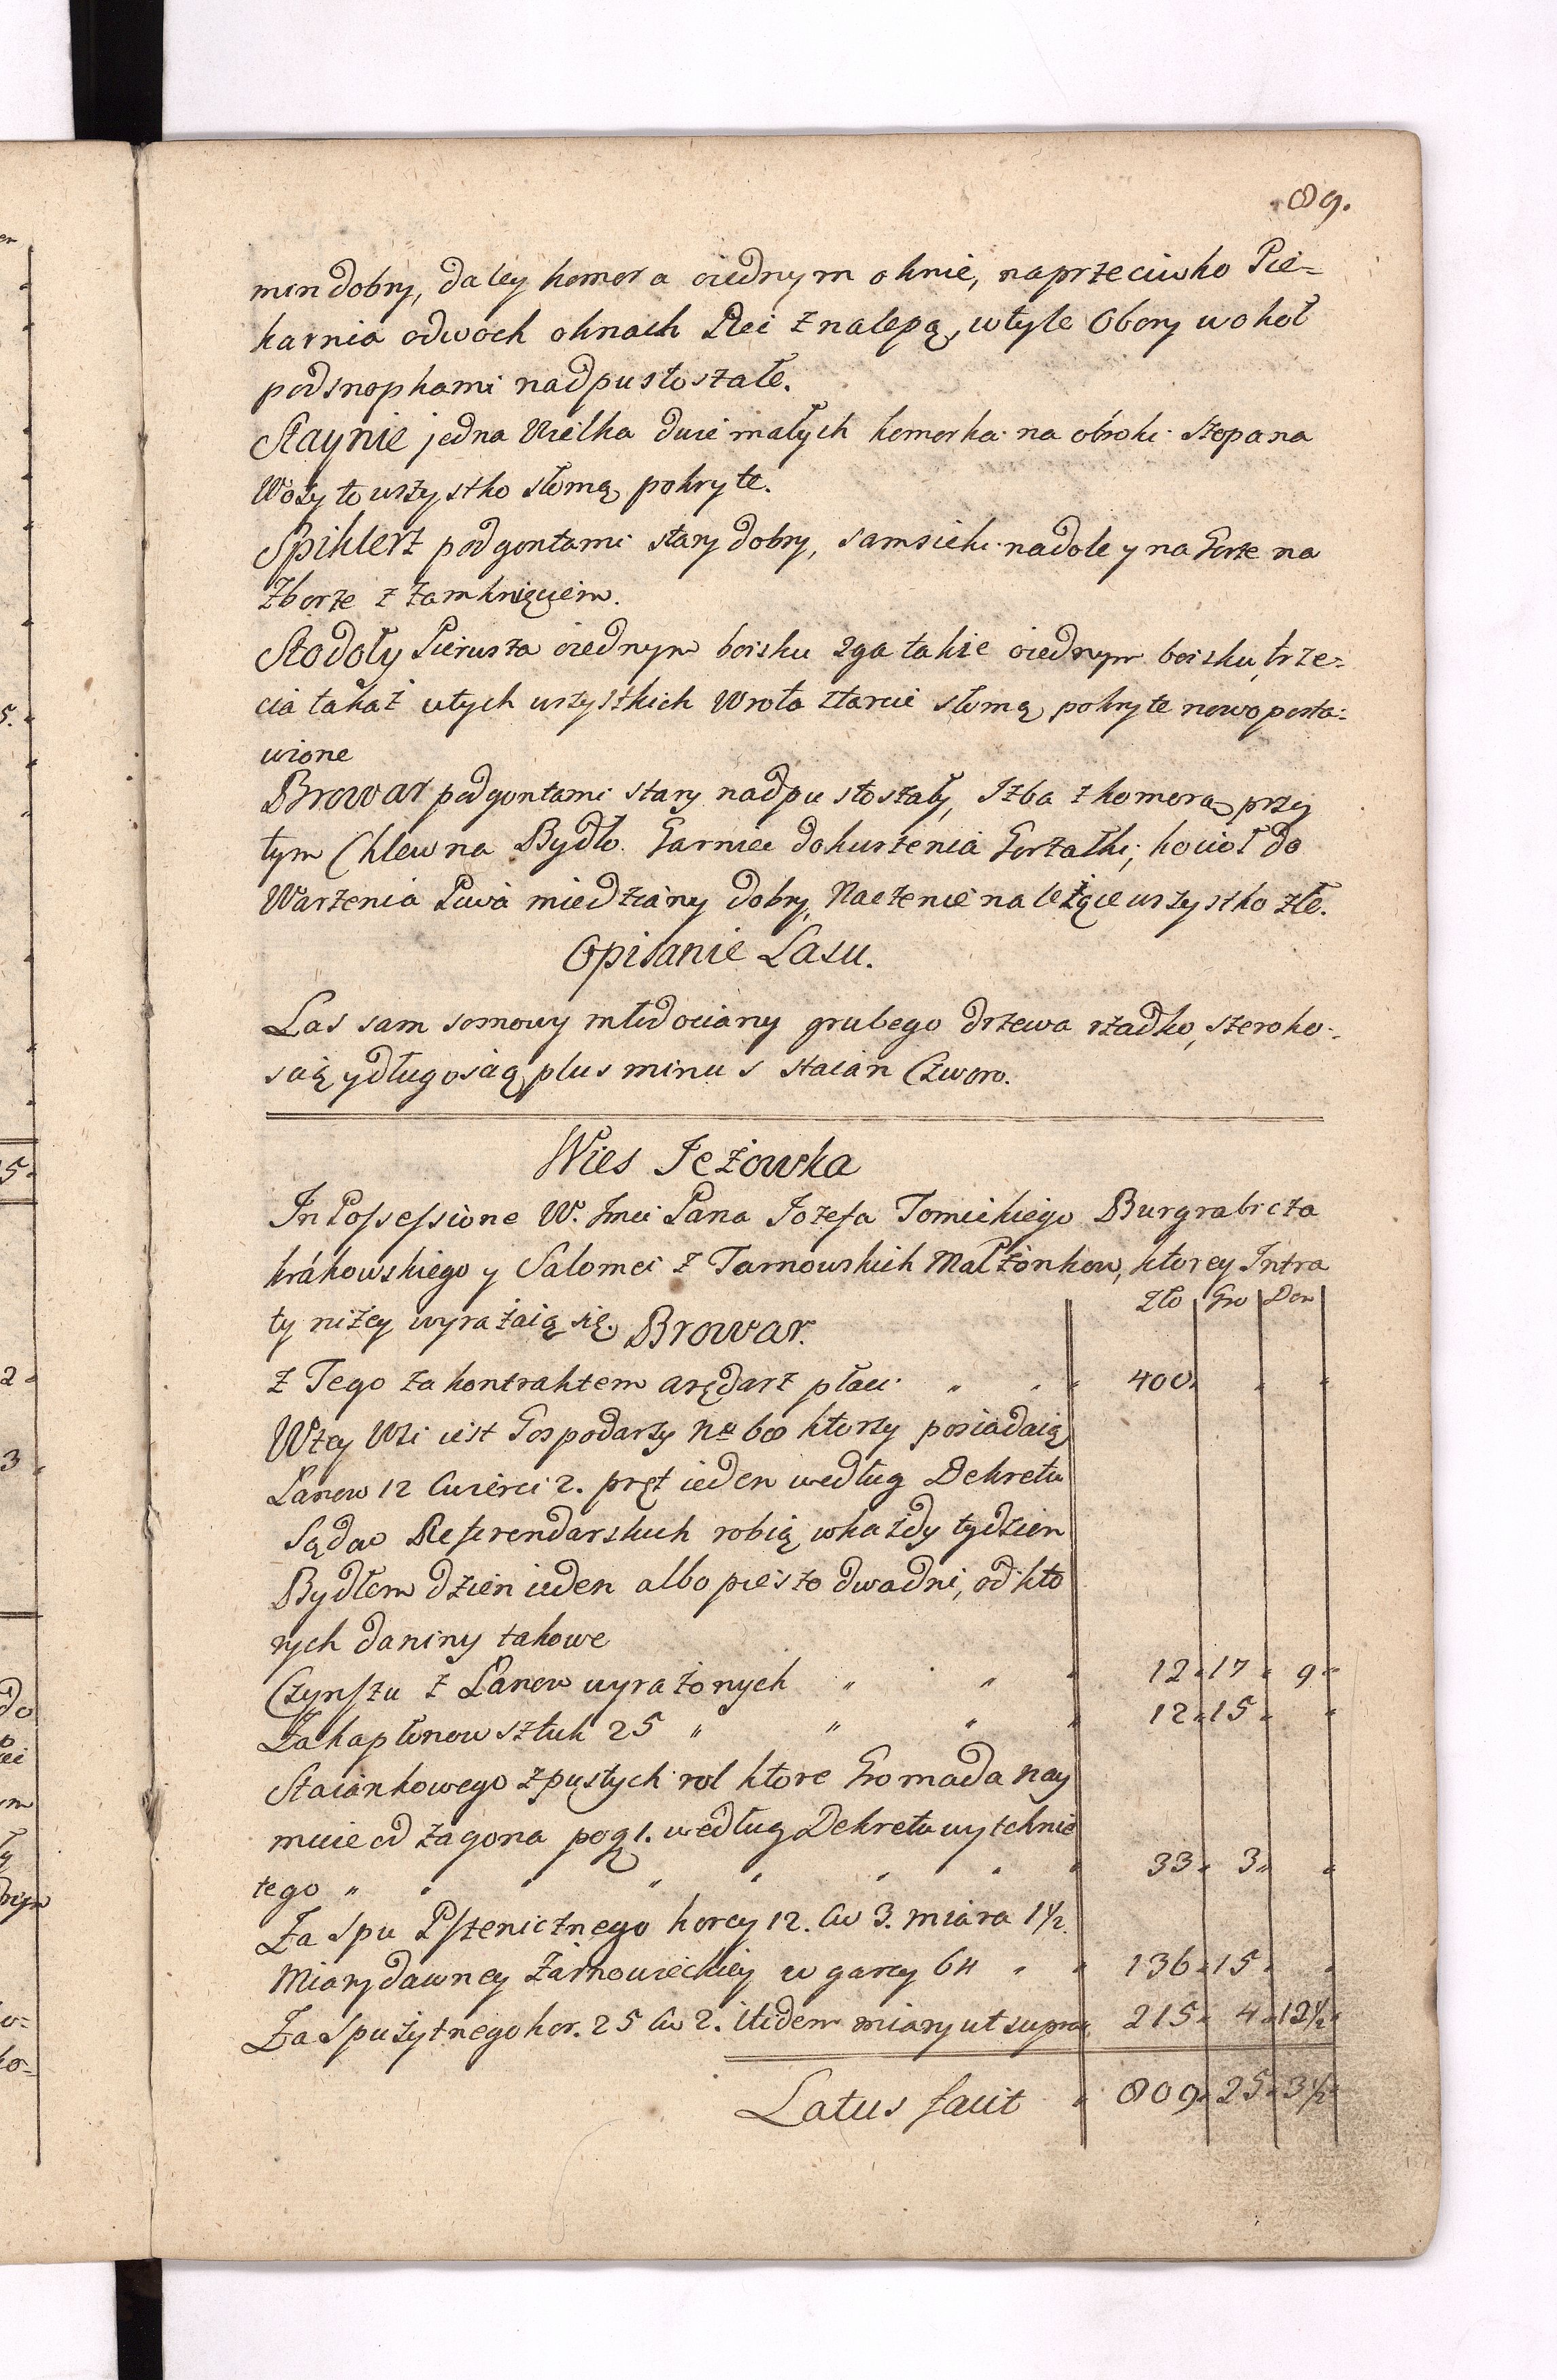 89.
men dobry, daley komora oiednym oknie, naprzeciwko Pie=
karnia odwoch oknach Piec z nalepą, wtyle Obory wokoł
podsnopkami nadpustoszałe.
Staynie jedna Wielka dwie małych komorka na obroki Szopa na
Wozy to wszystko słomą pokryte.
Spiklerz pod gontami stary dobry, samsieki nadole y na Gorze na
Zboze z zamknięciem.
Stodoły Pierwsza oiednym boisku 2ga takze oiednym boisku, trze=
cia takaz utych wszystkich Wrota ztarcic słomą pokryte nowo posta=
wione
Browar pod gontami stary nadpustoszały, Izba z komorą przy
tym Chlew na Bydło. Garniec do kurzenia Gorzałki, kocioł do
Warzenia Piwa miedziany dobry, Naczenie należące wszystko złe.
Opisanie Lasu.
Las sam sosnowy młodociany grubego drzewa rzadko, szeroko=
scią y długoscią plus minus staian Czworo.
Wies Jeżowka
In Possessione W. Jmci Pana Jozefa Tomickiego Burgrabicza
krakowskiego y Salomei z Tarnowskich Małżonkow, ktorey Intra
ty niżey wyrażaią się. Browar. Zło Gro Den
z Tego za kontraktem arędarz płaci " " " 400 " "
Wtey Wsi iest Gospodarzy No 68 ktorzy posiadaią
Łanow 12 Cwierci 2. pręt ieden według Dekretu
Sądow Referendarskich robią wkażdy tydzien
Bydłem dzien ieden albo pieszo dwa dni, od kto
rych daniny takowe
Czynszu z Łanow wyrażonych " " " 12 " 17 " 9 "
Za kapłonow sztuk 25 " " " " 12 " 15 " "
Staiankowego z pustych rol ktore Gromada nay
muie od zagona po g 1. według Dekretu wytchnie
tego " " " " " " " 33 " 3 " "
Za Spu Pszenicznego korcy 12. Cw 3. miara 1½
Miary dawney Zarnowieckiey w garcy 64 " " 136 " 15 " "
Za Spu żytnego kor. 25 Cw 2. itidem miary ut supra 215 " 4 " 12½ "
Latus facit " 809 " 25 " 3½ "